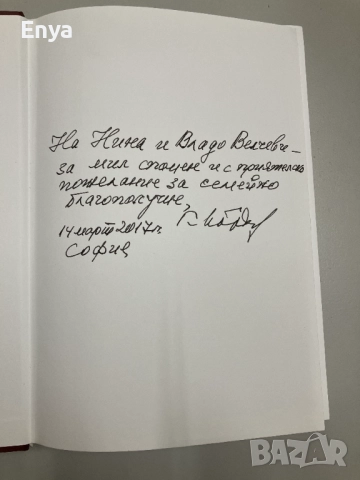 Enya
На Нина и Владо Велчеви –
за мил спомен и с приятелско
пожелание за семейно
благополучие,
14 март 2017 г.
София
BAZAR